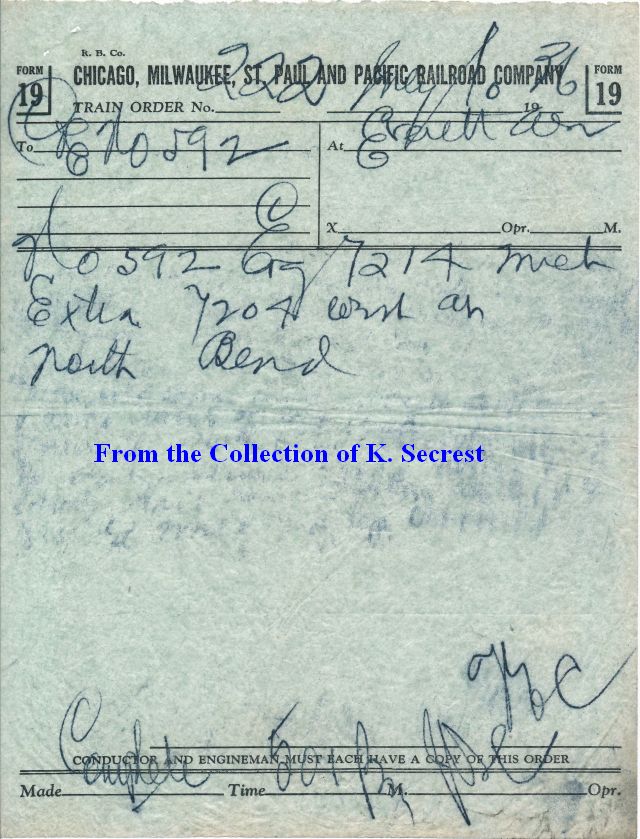 R. B. Co.
FORM 19 CHICAGO, MILWAUKEE, ST. PAUL AND PACIFIC RAILROAD COMPANY FORM 19
TRAIN ORDER No. 222 May 10 1936
To C&E No 592 At Everett Wn
X Opr. M.
No 592 Eng 7214 meet
Extra 7204 west at
North Bend
From the Collection of K. Secrest
CONDUCTOR AND ENGINEMAN MUST EACH HAVE A COPY OF THIS ORDER
Made Complete Time 501 P M. Opr.